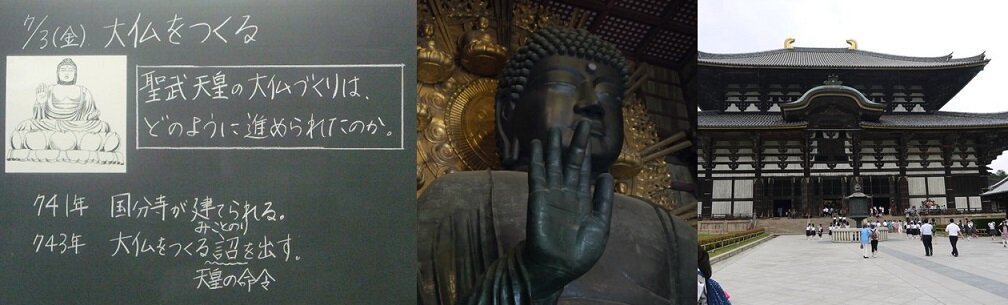 7/3(金) 大仏をつくる
聖武天皇の大仏づくりは、
どのように進められたのか。
741年 国分寺が建てられる。
みことのり
743年 大仏をつくる詔を出す。
天皇の命令